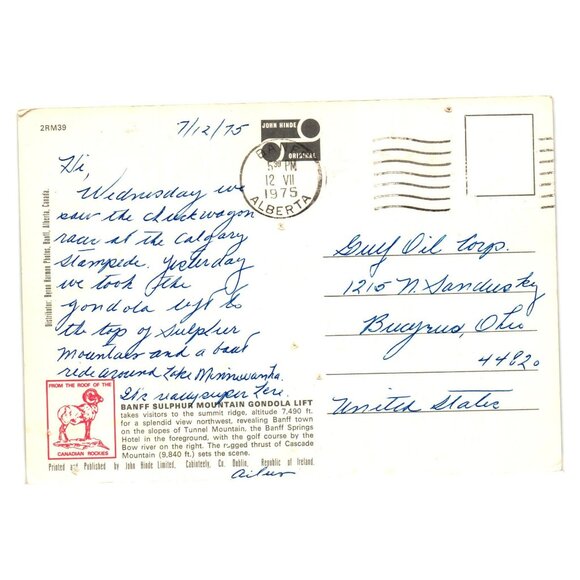 2RM39
7/12/75
JOHN HINDE
ORIGINAL
5 30 PM
12 VII
1975
ALBERTA
Hi,
Wednesday we
saw the chuckwagon
race at the Calgary
Stampede. Yesterday
we took the
gondola lift to
the top of Sulphur
Mountain and a boat
ride around Lake Minnewanka.
It's really super here.
Gulf Oil Corp.
1215 N. Sandusky
Bucyrus, Ohio
44820
United States
Distributor: Byron Harmon Photos, Banff, Alberta, Canada.
FROM THE ROOF OF THE
CANADIAN ROCKIES
BANFF SULPHUR MOUNTAIN GONDOLA LIFT
takes visitors to the summit ridge, altitude 7,490 ft.
for a splendid view northwest, revealing Banff town
on the slopes of Tunnel Mountain, the Banff Springs
Hotel in the foreground, with the golf course by the
Bow river on the right. The rugged thrust of Cascade
Mountain (9,840 ft.) sets the scene.
Printed and Published by John Hinde Limited, Cabinteely, Co. Dublin, Republic of Ireland.